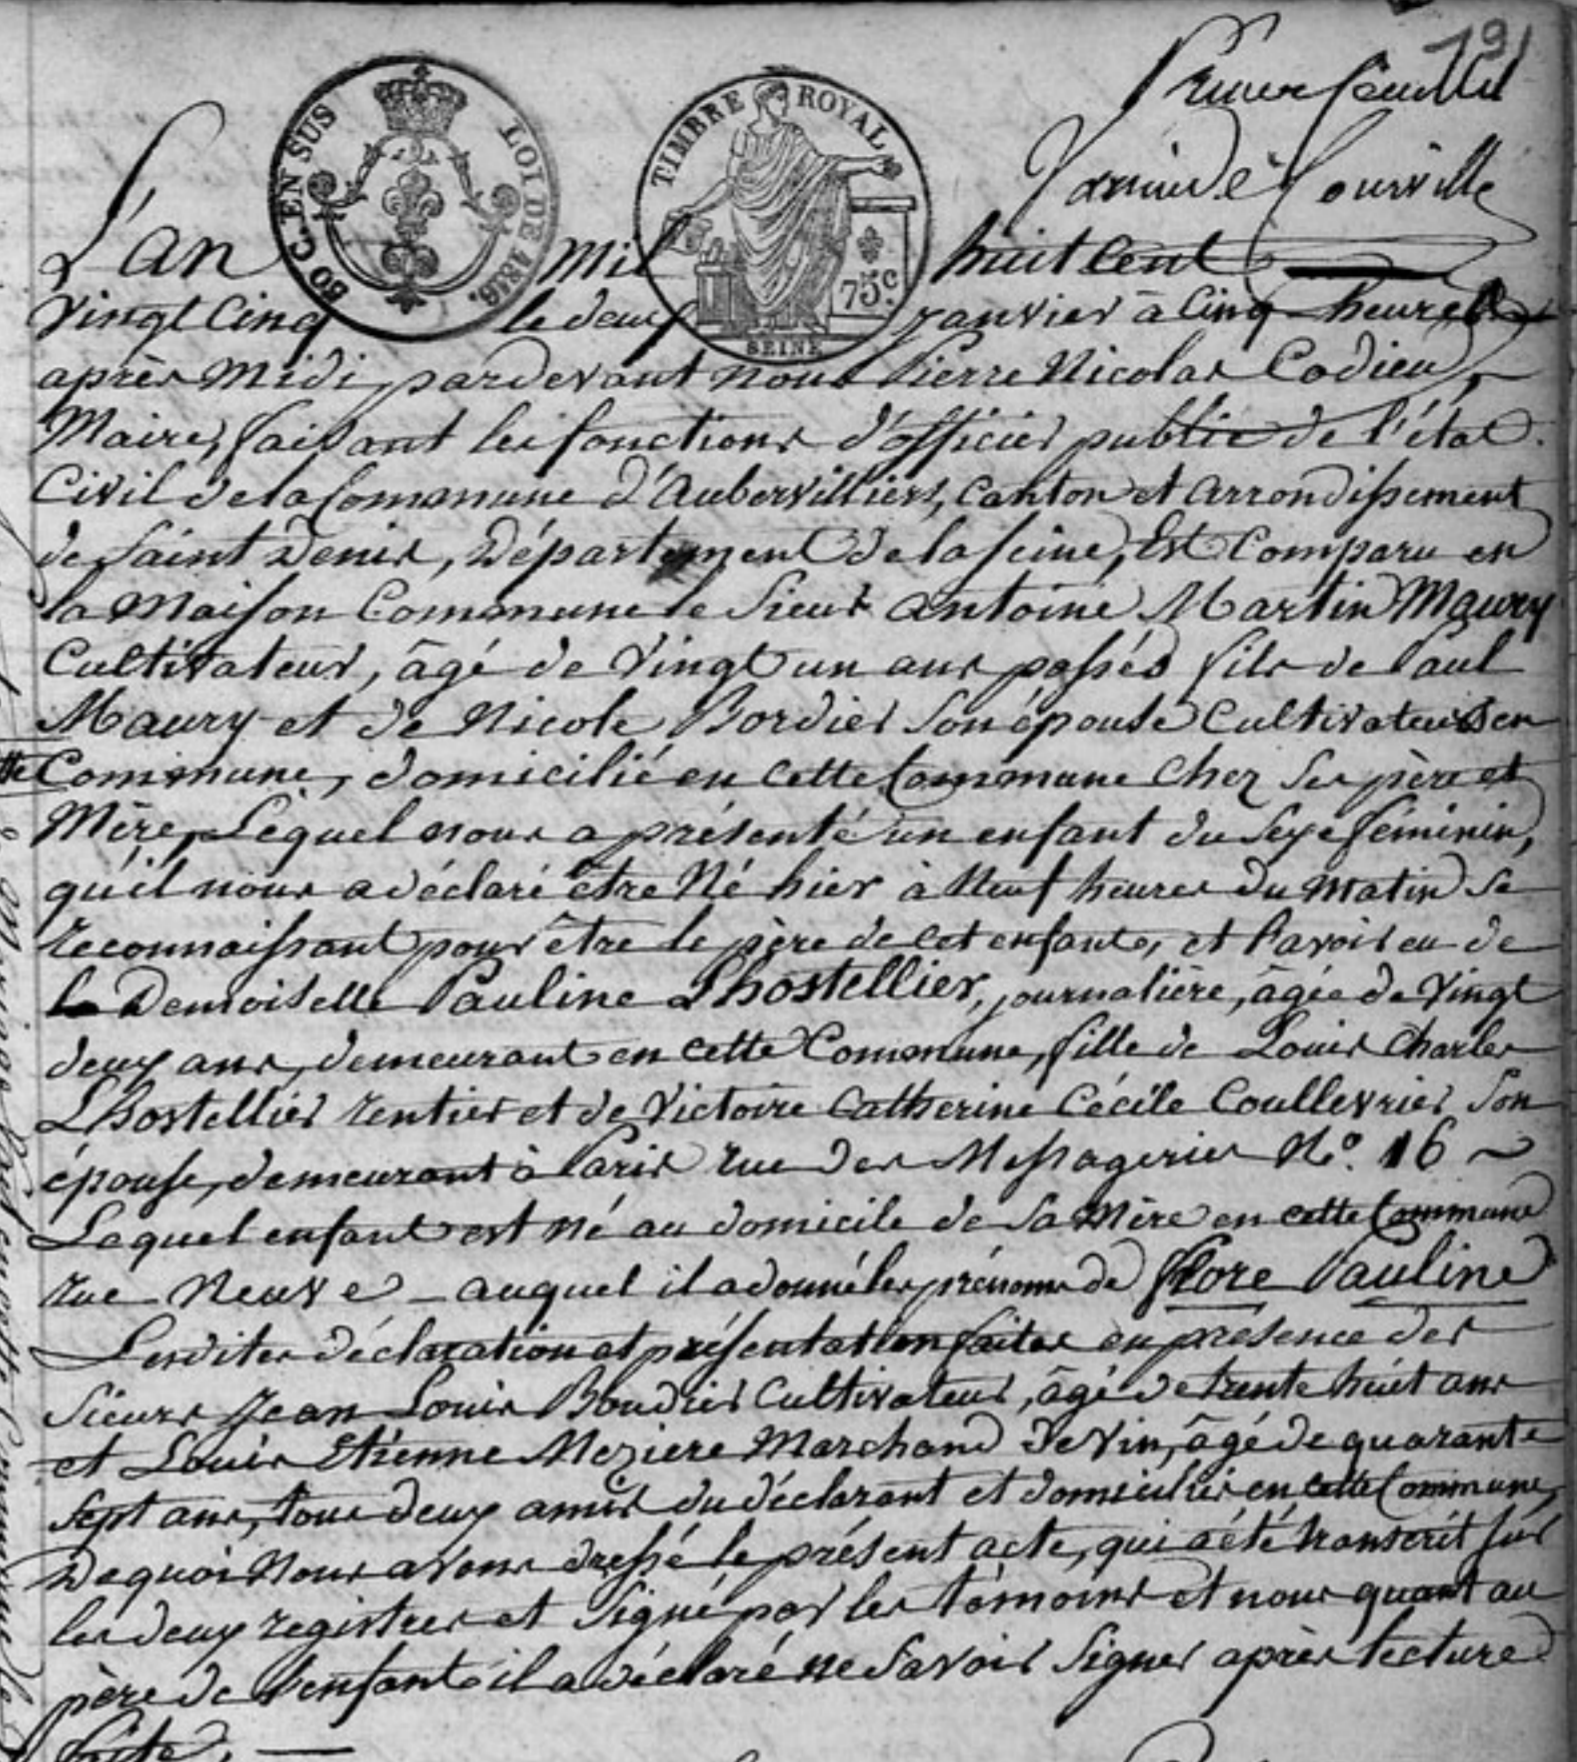 191
Premier feuillet
50 C. EN SUS LOI DE 1816.
TIMBRE ROYAL
75c.
SEINE
L'an Mil huit Cent
Vingt Cinq le deux Janvier à Cinq heures
après Midi, pardevant nous Pierre Nicolas Codieu,
Maire, faisant les fonctions d'officier public de l'état
Civil de la Commune d'Aubervilliers, Canton et Arrondissement
de Saint Denis, Département de la Seine, Est Comparu en
la Maison Commune le Sieur Antoine Martin Maury
Cultivateur, âgé de Vingt un ans passés fils de Paul
Maury et de Nicole Bordier Son épouse Cultivateurs en
cette Commune, domicilié en cette Commune Chez Ses père et
Mère, Lequel nous a présenté un enfant du Sexe féminin,
qu'il nous a déclaré être Né hier à Neuf heures du Matin Se
reconnaissant pour être le père de cet enfant, et l'avoir eu de
la Demoiselle Pauline Lhostellier, journalière, âgée de Vingt
deux ans, demeurant en cette Commune, fille de Louis Charles
Lhostellier rentier et de Victoire Catherine Cécile Coullevrier Son
épouse, demeurant à Paris rue des Messageries No. 16
Lequel enfant est Né au domicile de Sa Mère en cette Commune
rue Neuve auquel il a donné les prénoms de Flore Pauline
Lesdites déclaration et présentation faites en présence des
Sieurs Jean Louis Boudier Cultivateur, âgé de trente huit ans
et Louis Etienne Meziere Marchand de Vin, âgé de quarante
Sept ans, tous deux amis du déclarant et domiciliés en cette Commune,
De quoi Nous avons dressé le présent acte, qui a été transcrit sur
les deux registres et Signé par les témoins et nous quant au
père de l'enfant il a déclaré ne Savoir Signer après lecture
faite.